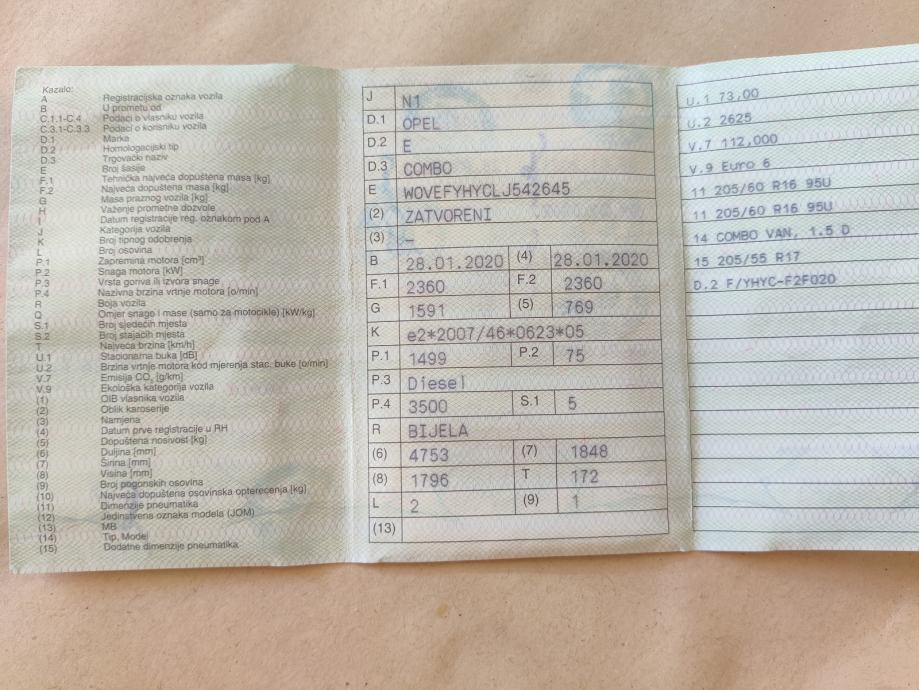 Kazalo:
A Registracijska oznaka vozila
B U prometu od
C.1.1-C.4 Podaci o vlasniku vozila
C.3.1-C.3.3 Podaci o korisniku vozila
D.1 Marka
D.2 Homologacijski tip
D.3 Trgovački naziv
E Broj šasije
F.1 Tehnička najveća dopuštena masa [kg]
F.2 Najveća dopuštena masa [kg]
G Masa praznog vozila [kg]
H Važenje prometne dozvole
I Datum registracije reg. oznakom pod A
J Kategorija vozila
K Broj tipnog odobrenja
L Broj osovina
P.1 Zapremina motora [cm³]
P.2 Snaga motora [kW]
P.3 Vrsta goriva ili izvora snage
P.4 Nazivna brzina vrtnje motora [o/min]
R Boja vozila
Q Omjer snage i mase (samo za motocikle) [kW/kg]
S.1 Broj sjedećih mjesta
S.2 Broj stajaćih mjesta
T Najveća brzina [km/h]
U.1 Stacionarna buka [dB]
U.2 Brzina vrtnje motora kod mjerenja stac. buke [o/min]
V.7 Emisija CO₂ [g/km]
V.9 Ekološka kategorija vozila
(1) OIB vlasnika vozila
(2) Oblik karoserije
(3) Namjena
(4) Datum prve registracije u RH
(5) Dopuštena nosivost [kg]
(6) Duljina [mm]
(7) Širina [mm]
(8) Visina [mm]
(9) Broj pogonskih osovina
(10) Najveća dopuštena osovinska opterećenja [kg]
(11) Dimenzije pneumatika
(12) Jedinstvena oznaka modela (JOM)
(13) MB
(14) Tip, Model
(15) Dodatne dimenzije pneumatika
J N1
D.1 OPEL
D.2 E
D.3 COMBO
E W0VEFYHYCLJ542645
(2) ZATVORENI
(3) –
B 28.01.2020 (4) 28.01.2020
F.1 2360 F.2 2360
G 1591 (5) 769
K e2*2007/46*0623*05
P.1 1499 P.2 75
P.3 Diesel
P.4 3500 S.1 5
R BIJELA
(6) 4753 (7) 1848
(8) 1796 T 172
L 2 (9) 1
(13)
U.1 73,00
U.2 2625
V.7 112,000
V.9 Euro 6
11 205/60 R16 95U
11 205/60 R16 95U
14 COMBO VAN, 1.5 D
15 205/55 R17
D.2 F/YHYC-F2F020